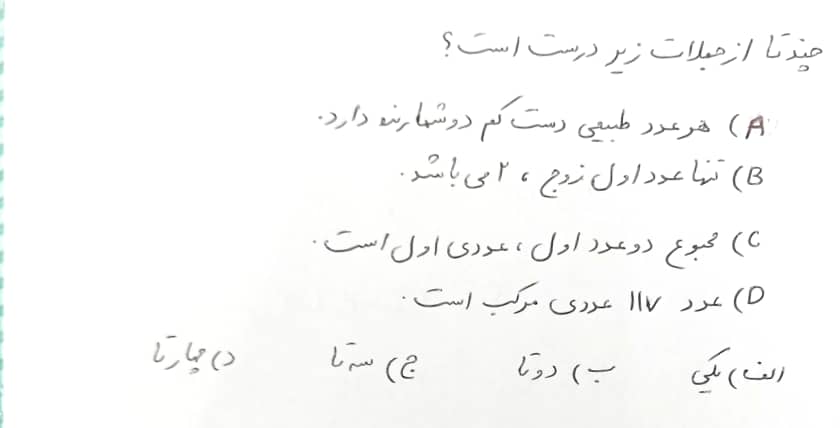 چندتا از جملات زیر درست است؟
A) هر عدد طبیعی دست کم دو شمارنده دارد.
B) تنها عدد اول زوج، ۲ می باشد.
C) مجموع دو عدد اول، عددی اول است.
D) عدد ۱۱۷ عددی مرکب است.
الف) یکی ب) دوتا ج) سه تا د) چهارتا